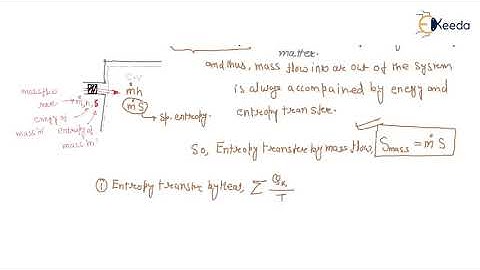 Ekeeda
matter.
and thus, mass flow into are out of the system
is always accompained by energy and
entropy transfer.
C.V
ṁh
ṁs
sp. entropy.
mass flow
rate
m, h, s
energy of
mass 'm'
entropy of
mass 'm'
So, Entropy transfer by mass flow, Smass = ṁ S
① Entropy transfer by Heat, Σ Qk
T